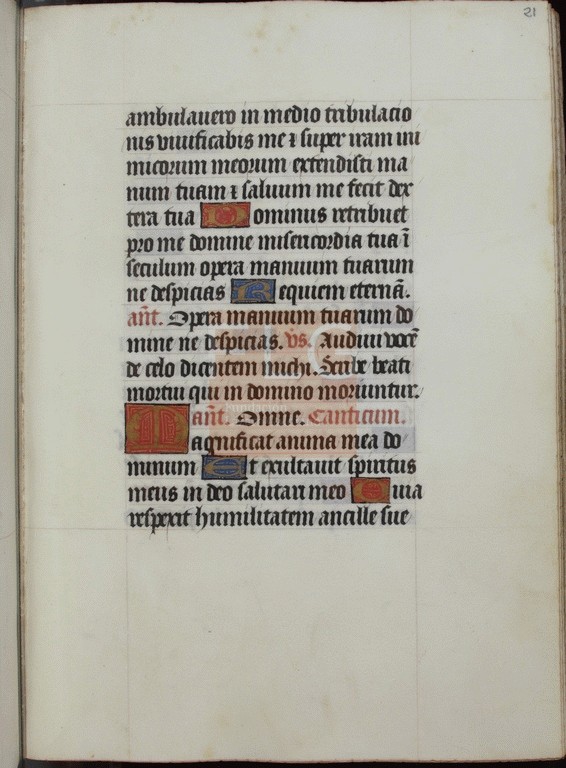 21
ambulauero in medio tribulacio
nis viuificabis me ⁊ super iram ini
micorum meorum extendisti ma
num tuam ⁊ saluum me fecit dex
tera tua Dominus retribuet
pro me domine misericordia tua ī
seculum opera manuum tuarum
ne despicias Requiem eternā.
añt. Opera manuum tuarum do
mine ne despicias. vs. Audiui vocē
de celo dicentem michi. Scribe beati
mortui qui in domino moriuntur.
añt. Omne. Canticum.
Magnificat anima mea do
minum Et exultauit spiritus
meus in deo salutari meo Quia
respexit humilitatem ancille sue